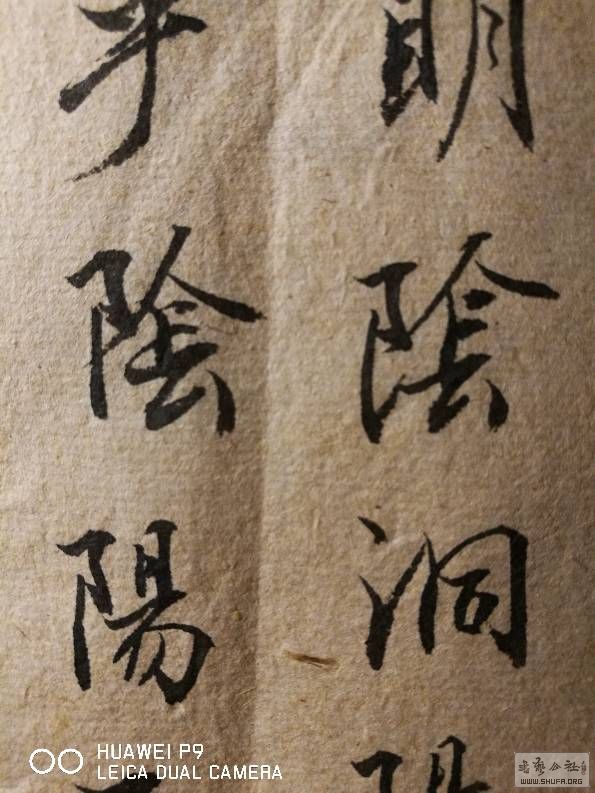 明陰洞陽
乎陰陽
HUAWEI P9
LEICA DUAL CAMERA
WWW.SHUFA.ORG